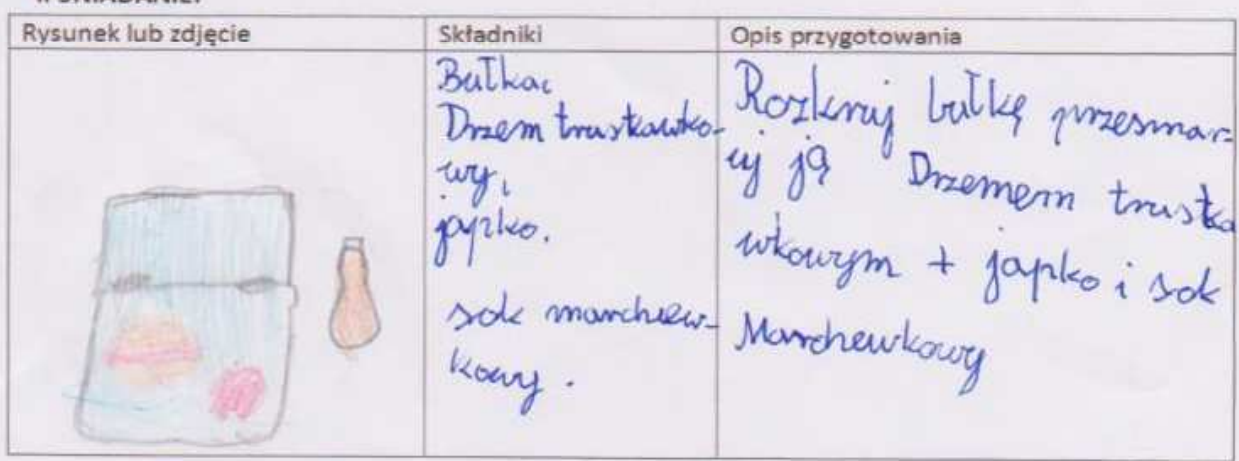 II ŚNIADANIE:
Rysunek lub zdjęcie
Składniki
Opis przygotowania
Bułka,
Drzem truskawko-
wy,
japko.
sok marchew-
kowy.
Rozkruj bułkę przesmar-
uj ją Drzemem truska
wkowym + japko i sok
Marchewkowy